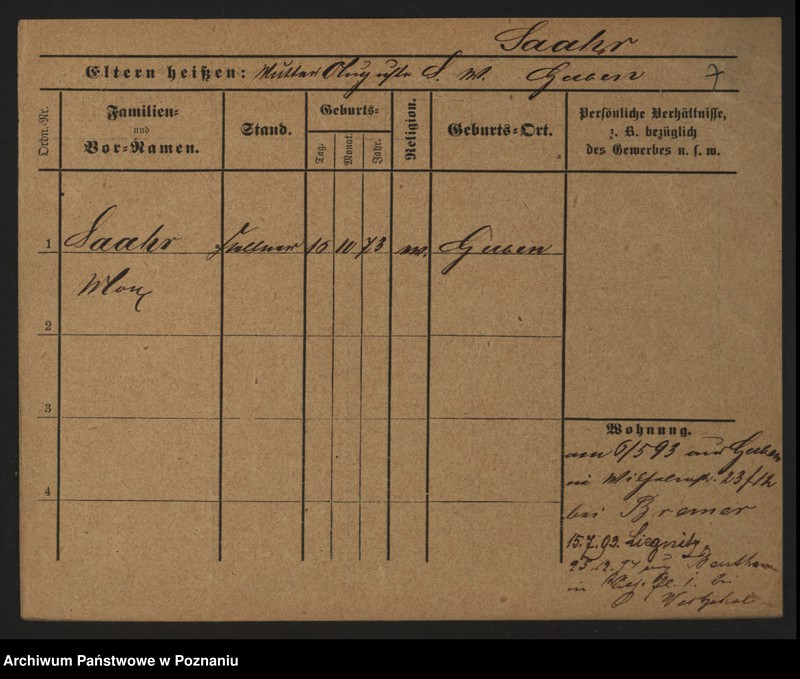 Saahr
Eltern heißen: Mutter Auguste S. w. Guben 7
Ordn.-Nr.
Familien-
und
Vor-Namen.
Stand.
Geburts-
Tag.
Monat.
Jahr.
Religion.
Geburts-Ort.
Persönliche Verhältnisse,
z. B. bezüglich
des Gewerbes u. s. w.
1 Saahr Kellner 16 10 73 w. Guben
Max
2
3
4
Wohnung.
am 6/5 93 aus Guben
in Wilhelmstr. 23/12
bei Bremer
15.7.93. Liegnitz
aus
in